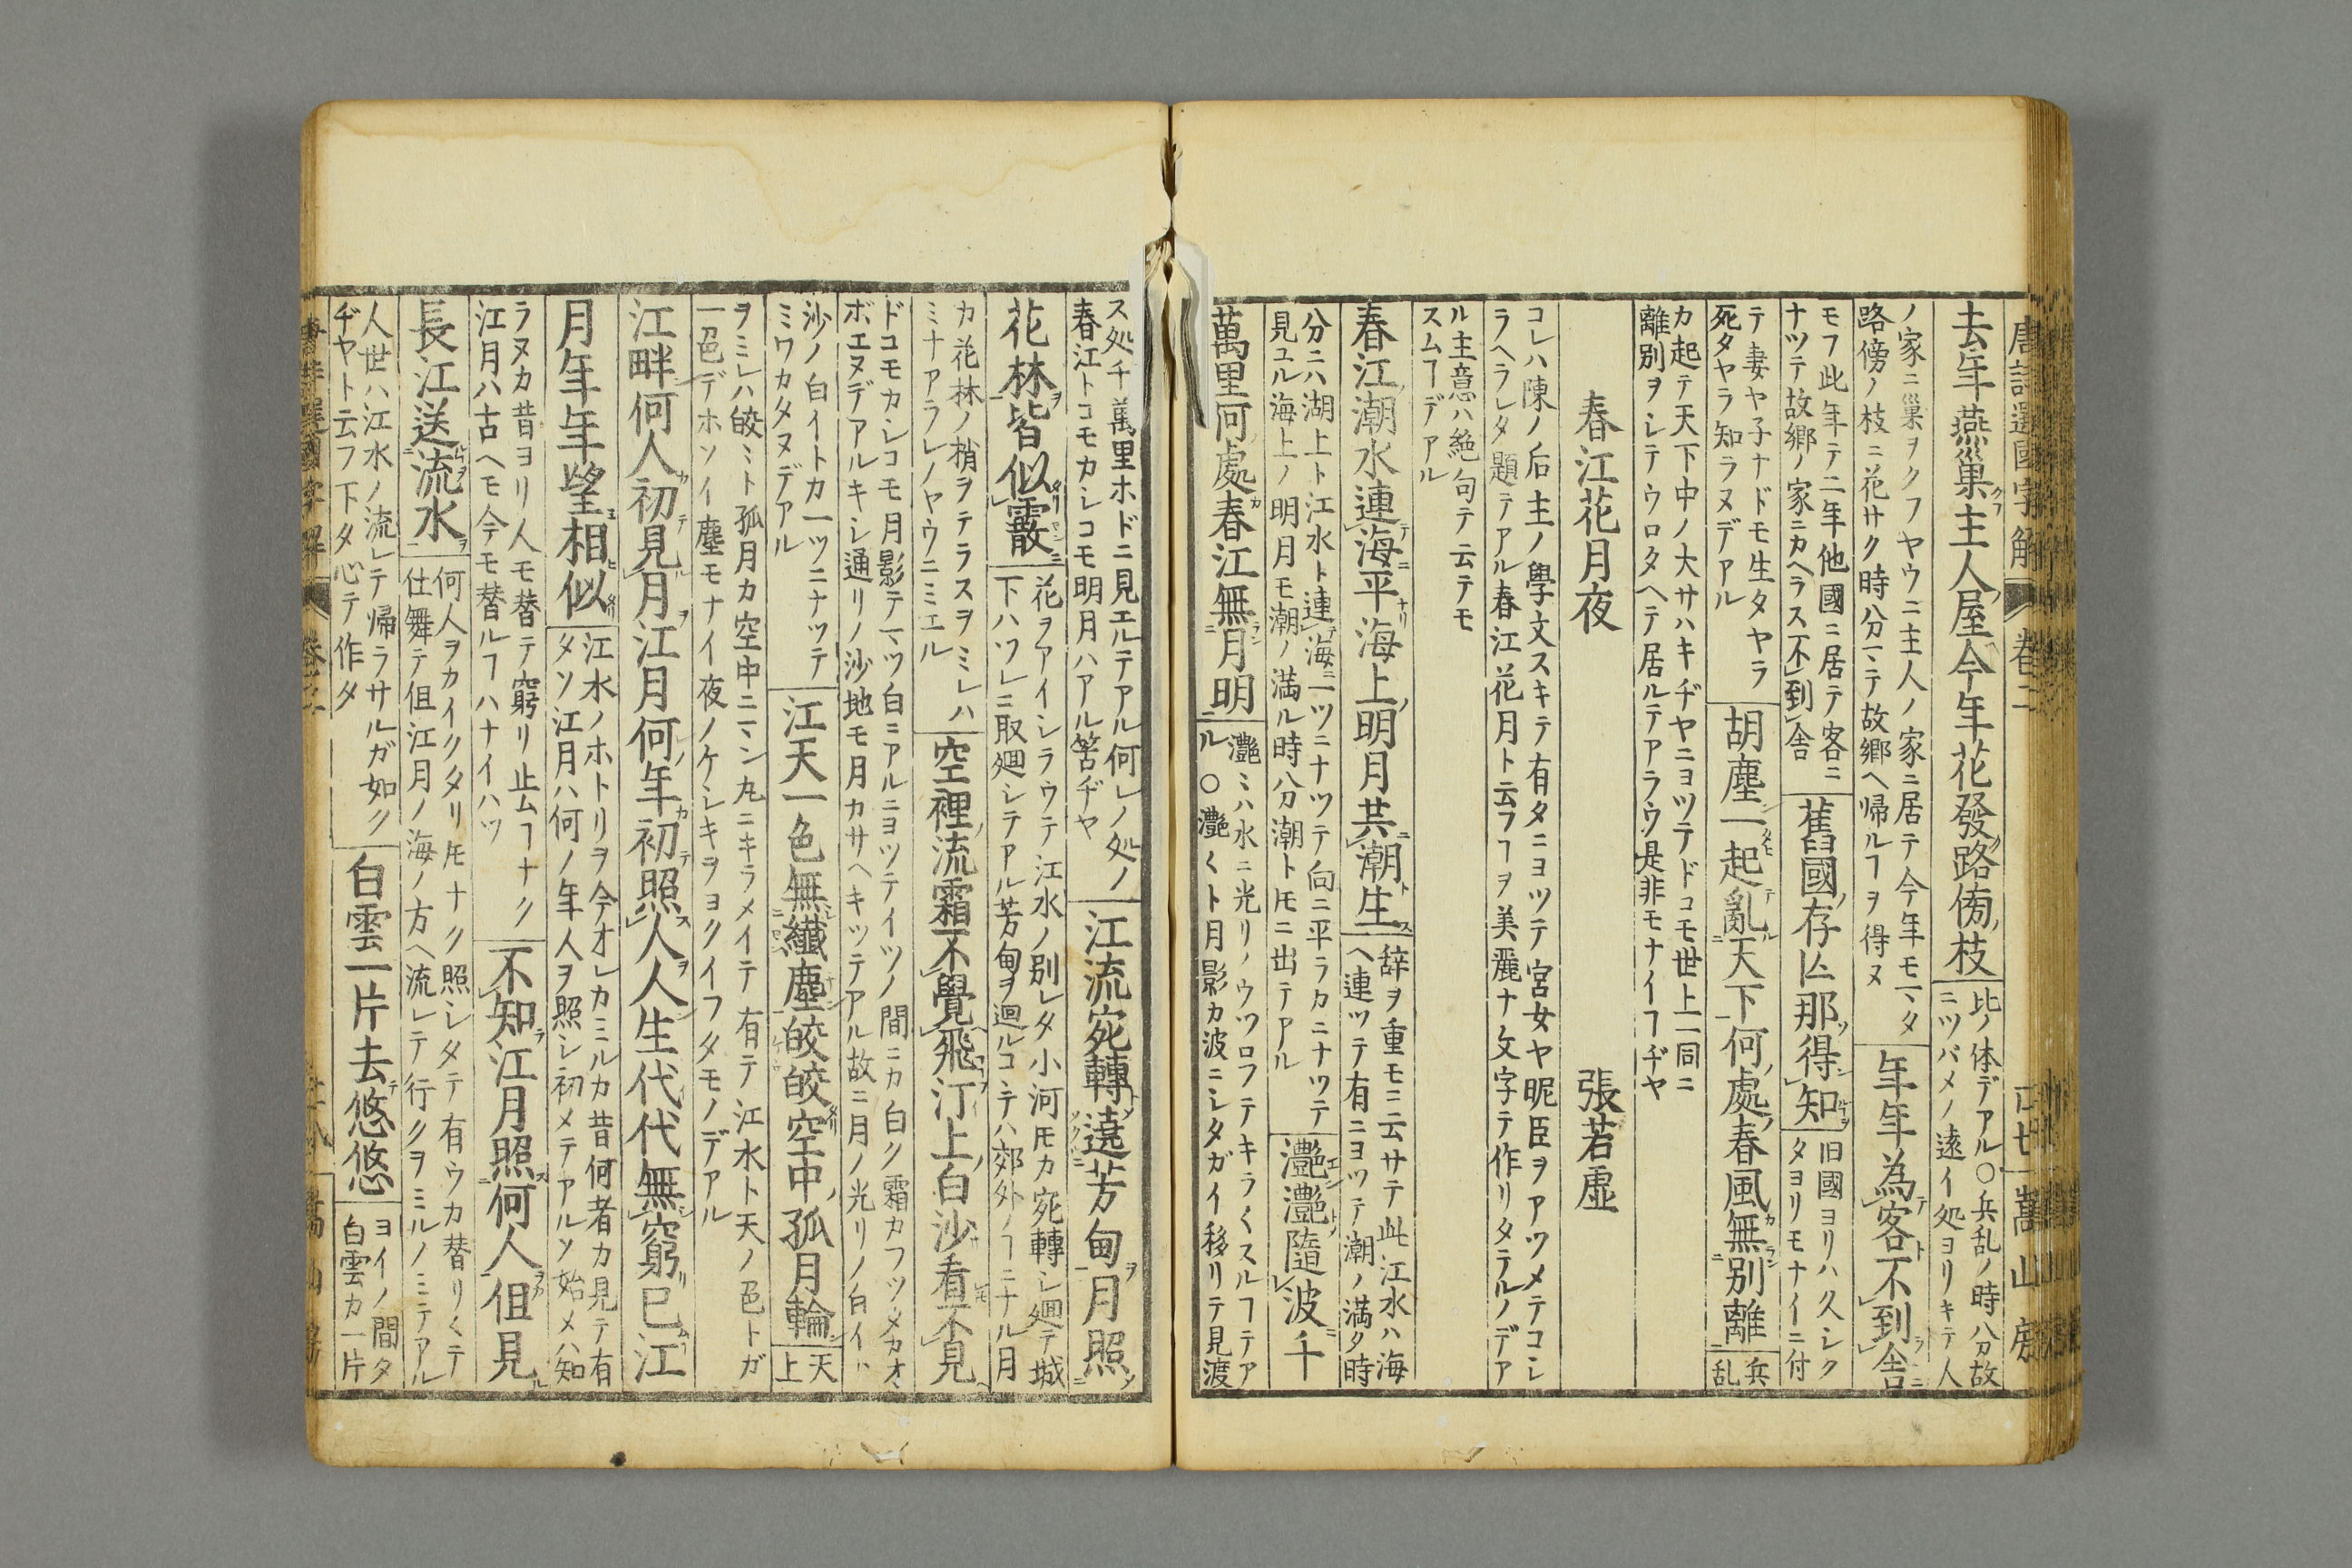 唐詩選國字解 卷二 嵩山房
去年燕巢主人屋今年花發路傍枝
比ノ体デアル○兵乱ノ時分故
ニツバメノ遠イ処ヨリキテ人
ノ家ニ巢ヲクフヤウニ主人ノ家ニ居テ今年モ一ヽタ
路傍ノ枝ニ花サク時分一ヽテ故郷ヘ帰ルヿヲ得ヌ
年年為客不到舎
モフ此年テ二年他國ニ居テ客ニ
ナツテ故郷ノ家ニカヘラス不到舎
舊國存亡那得知
旧國ヨリハ久シク
タヨリモナイニ付
テ妻ヤ子ナドモ生タヤラ
死タヤラ知ラヌデアル
胡塵一起亂天下何處春風無別離
兵
乱
カ起テ天下中ノ大サハキヂヤニヨツテドコモ世上一同ニ
離別ヲシテウロタヘテ居ルテアラウ是非モナイヿヂヤ
春江花月夜 張若虚
コレハ陳ノ后主ノ學文スキテ有タニヨツテ宮女ヤ昵臣ヲアツメテコシ
ラヘラレタ題テアル春江花月ト云フヿヲ美麗ナ文字テ作リタテルノデア
ル主意ハ絶句テ云テモ
スムヿデアル
春江潮水連海平海上明月共潮生
辞ヲ重モニ云サテ此江水ハ海
ヘ連ツテ有ニヨツテ潮ノ満タ時
分ニハ湖上ト江水ト連海一ツニナツテ向ニ平ラカニナツテ
見ユル海上ノ明月モ潮ノ満ル時分潮トモニ出テアル
灔灔隨波千
萬里何處春江無月明
灔ミハ水ニ光リノウツロフテキラ〱スルヿテア
ル○灔〱ト月影カ波ニシタガイ移リテ見渡
ス処千萬里ホドニ見エルテアル何レノ処ノ
春江トコモカシコモ明月ハアル筈ヂヤ
江流宛轉遶芳甸月照
花林皆似霰
花ヲアイシラウテ江水ノ別レタ小河トモカ宛轉シ廻テ城
下ハツレニ取廻シテアル芳甸ヲ廻ルコヽテハ郊外ノヿニナル月
カ花林ノ梢ヲテラスヲミレハ
ミナアラレノヤウニミエル
空裡流霜不覺飛汀上白沙看不見
ドコモカシコモ月影テ一ツ白ニアルニヨツテイツノ間ニカ白ク霜カフツタカオ
ボエヌデアルキレ通リノ沙地モ月カサヘキツテアル故ニ月ノ光リノ白イト
沙ノ白イトカ一ツニナツテ
ミワカタヌデアル
江天一色無纖塵皎皎空中孤月輪
天
上
ヲミレハ皎ミト孤月カ空中ニ一マン丸ニキラメイテ有テ江水ト天ノ色トガ
一色デホソイ塵モナイ夜ノケシキヲヨクイフタモノデアル
江畔何人初見月江月何年初照人人生代代無窮已江
月年年望相似
江水ノホトリヲ今オレカミルカ昔何者カ見テ有
タソ江月ハ何ノ年人ヲ照シ初メテアルソ始メハ知
ラヌカ昔ヨリ人モ替テ窮リ止ムヿナク
江月ハ古ヘモ今モ替ルヿハナイハツ
不知江月照何人但見
長江送流水
何人ヲカイクタリトモナク照シタテ有ウカ替リ〱テ
仕舞テ但江月ノ海ノ方ヘ流レテ行クヲミルノミテアル
人世ハ江水ノ流レテ帰ラサルガ如ク
ヂヤト云フ下タ心テ作タ
白雲一片去悠悠
ヨイノ間タ
白雲カ一片